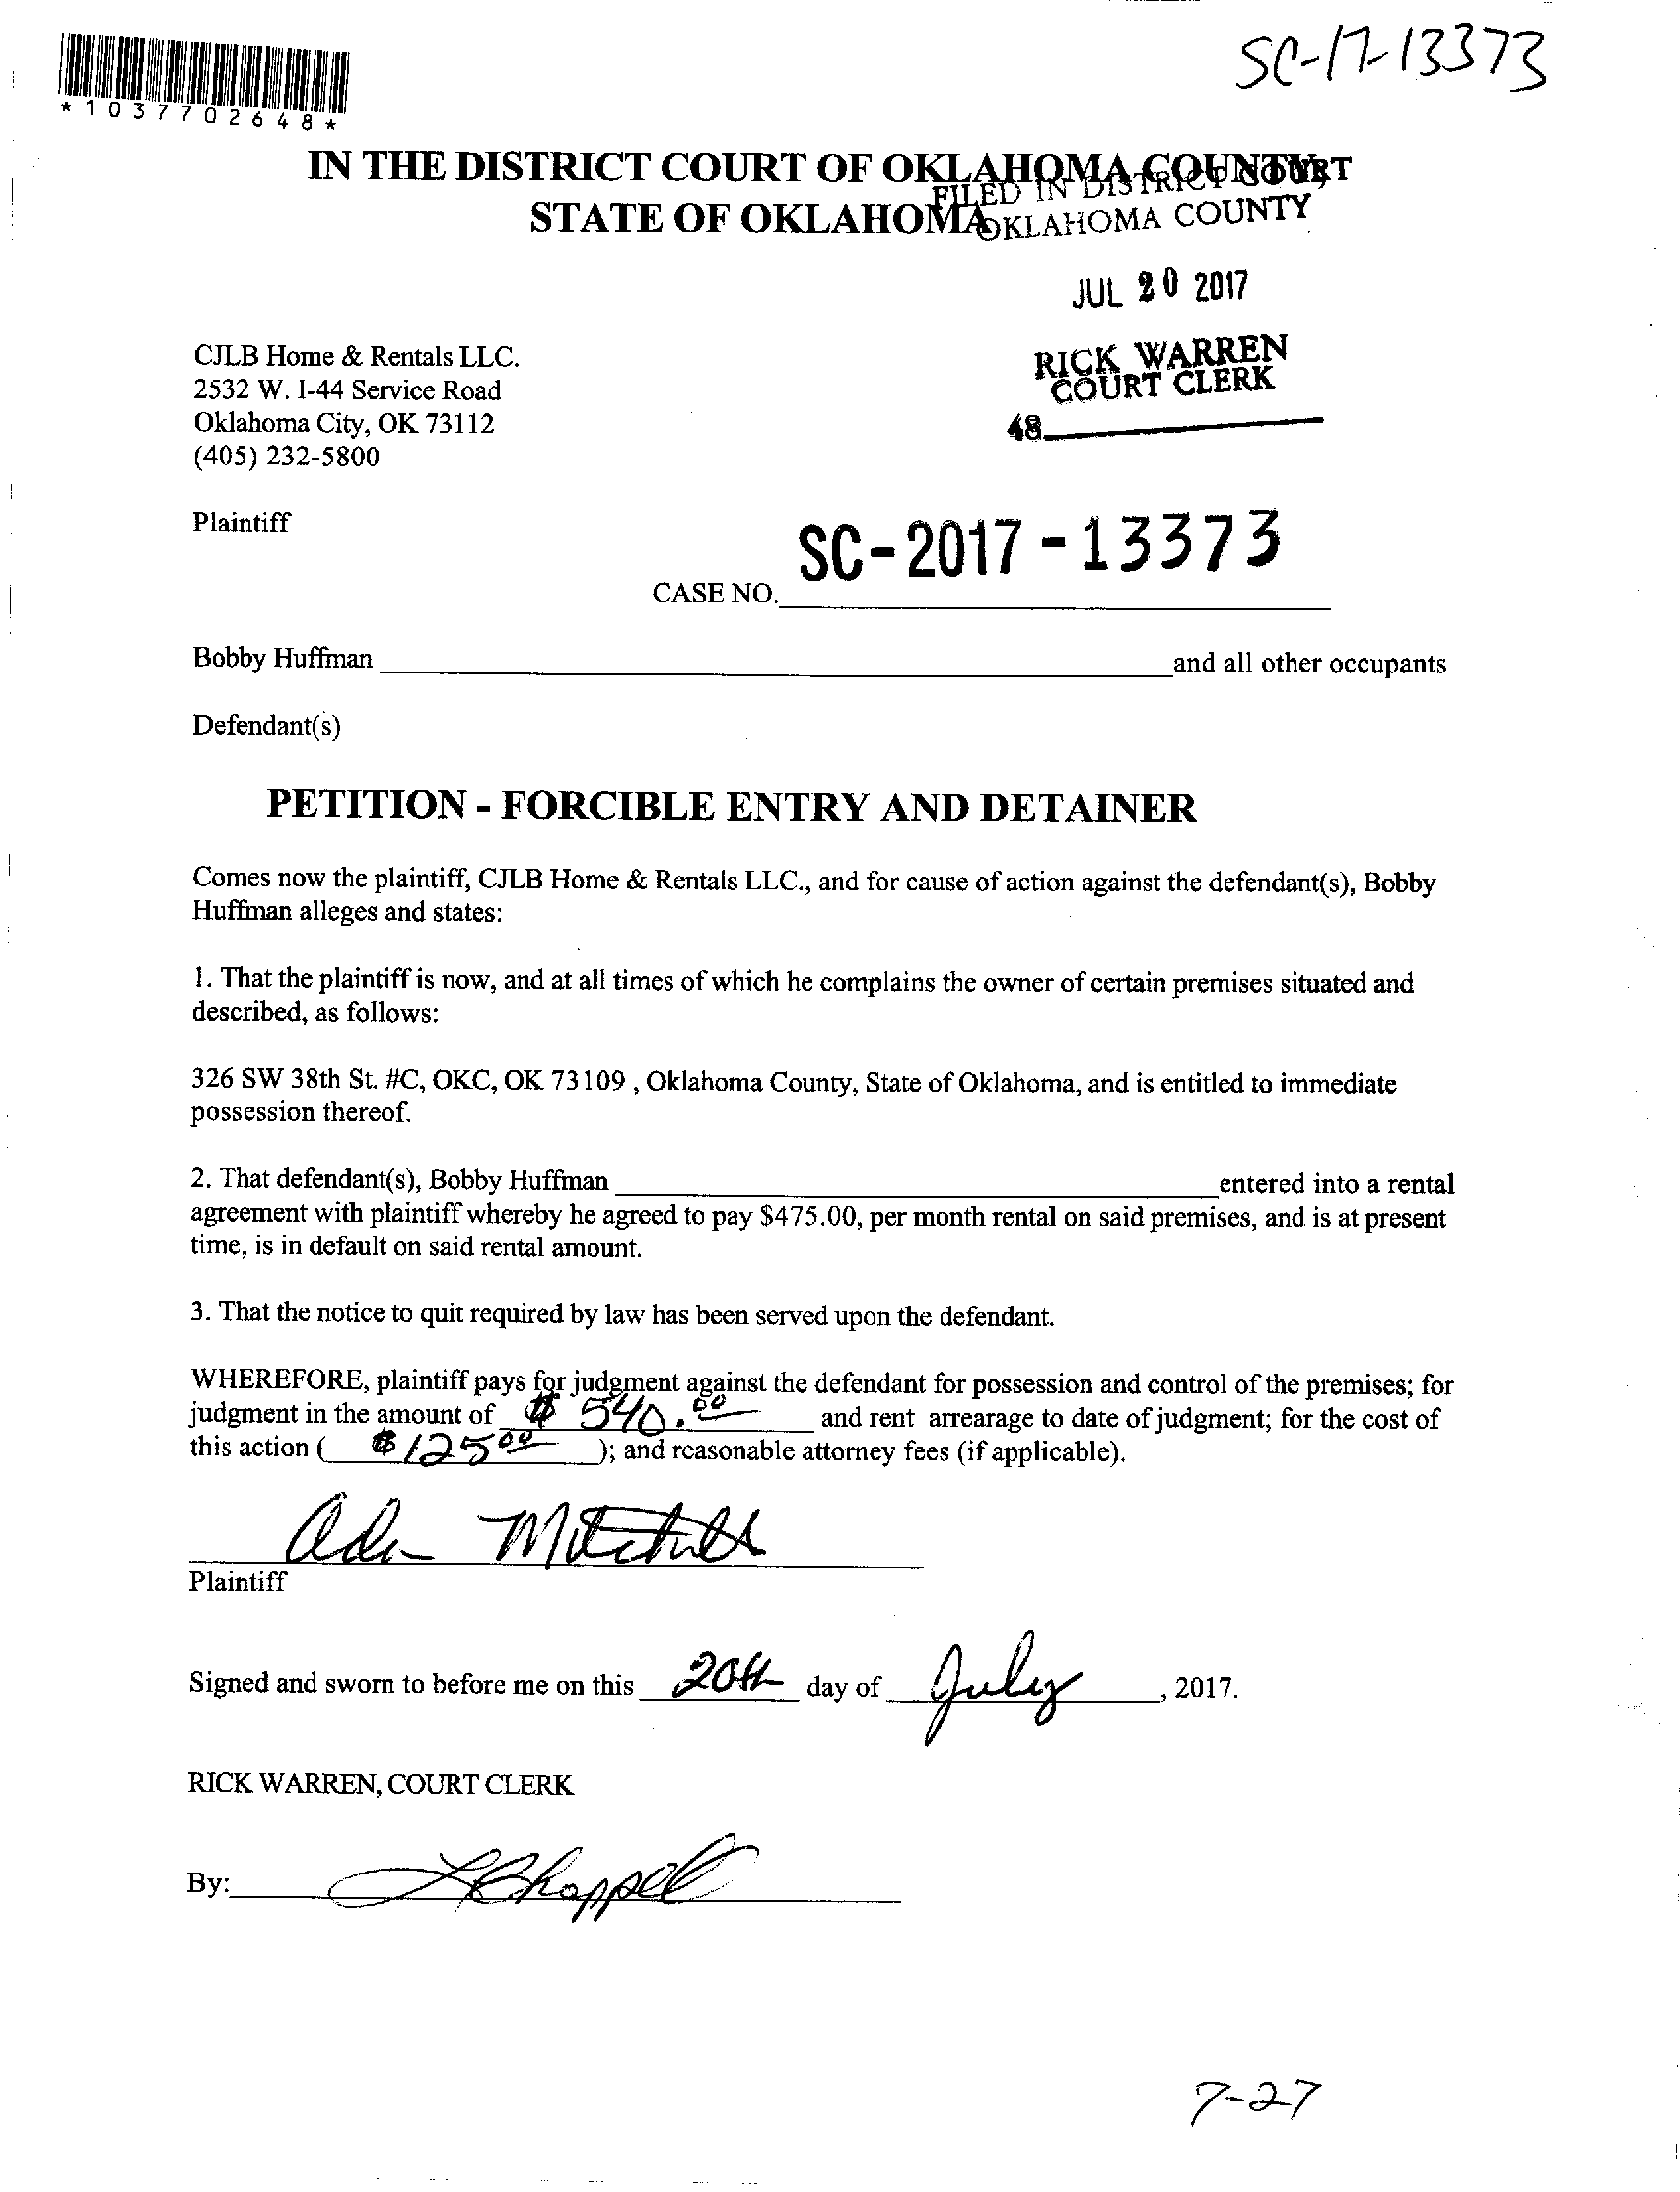 SC-17-13373
*1037702648*
IN THE DISTRICT COURT OF OKLAHOMA COUNTY,
STATE OF OKLAHOMA
FILED IN DISTRICT COURT
OKLAHOMA COUNTY
JUL 20 2017
RICK WARREN
COURT CLERK
48
CJLB Home & Rentals LLC.
2532 W. I-44 Service Road
Oklahoma City, OK 73112
(405) 232-5800
Plaintiff
SC-2017-13373
CASE NO.
Bobby Huffman and all other occupants
Defendant(s)
PETITION - FORCIBLE ENTRY AND DETAINER
Comes now the plaintiff, CJLB Home & Rentals LLC., and for cause of action against the defendant(s), Bobby
Huffman alleges and states:
1. That the plaintiff is now, and at all times of which he complains the owner of certain premises situated and
described, as follows:
326 SW 38th St. #C, OKC, OK 73109 , Oklahoma County, State of Oklahoma, and is entitled to immediate
possession thereof.
2. That defendant(s), Bobby Huffman entered into a rental
agreement with plaintiff whereby he agreed to pay $475.00, per month rental on said premises, and is at present
time, is in default on said rental amount.
3. That the notice to quit required by law has been served upon the defendant.
WHEREFORE, plaintiff pays for judgment against the defendant for possession and control of the premises; for
judgment in the amount of $ 540.00 and rent arrearage to date of judgment; for the cost of
this action ( $125 00 ); and reasonable attorney fees (if applicable).
Plaintiff
Signed and sworn to before me on this 20th day of July , 2017.
RICK WARREN, COURT CLERK
By: LChappell
7-27